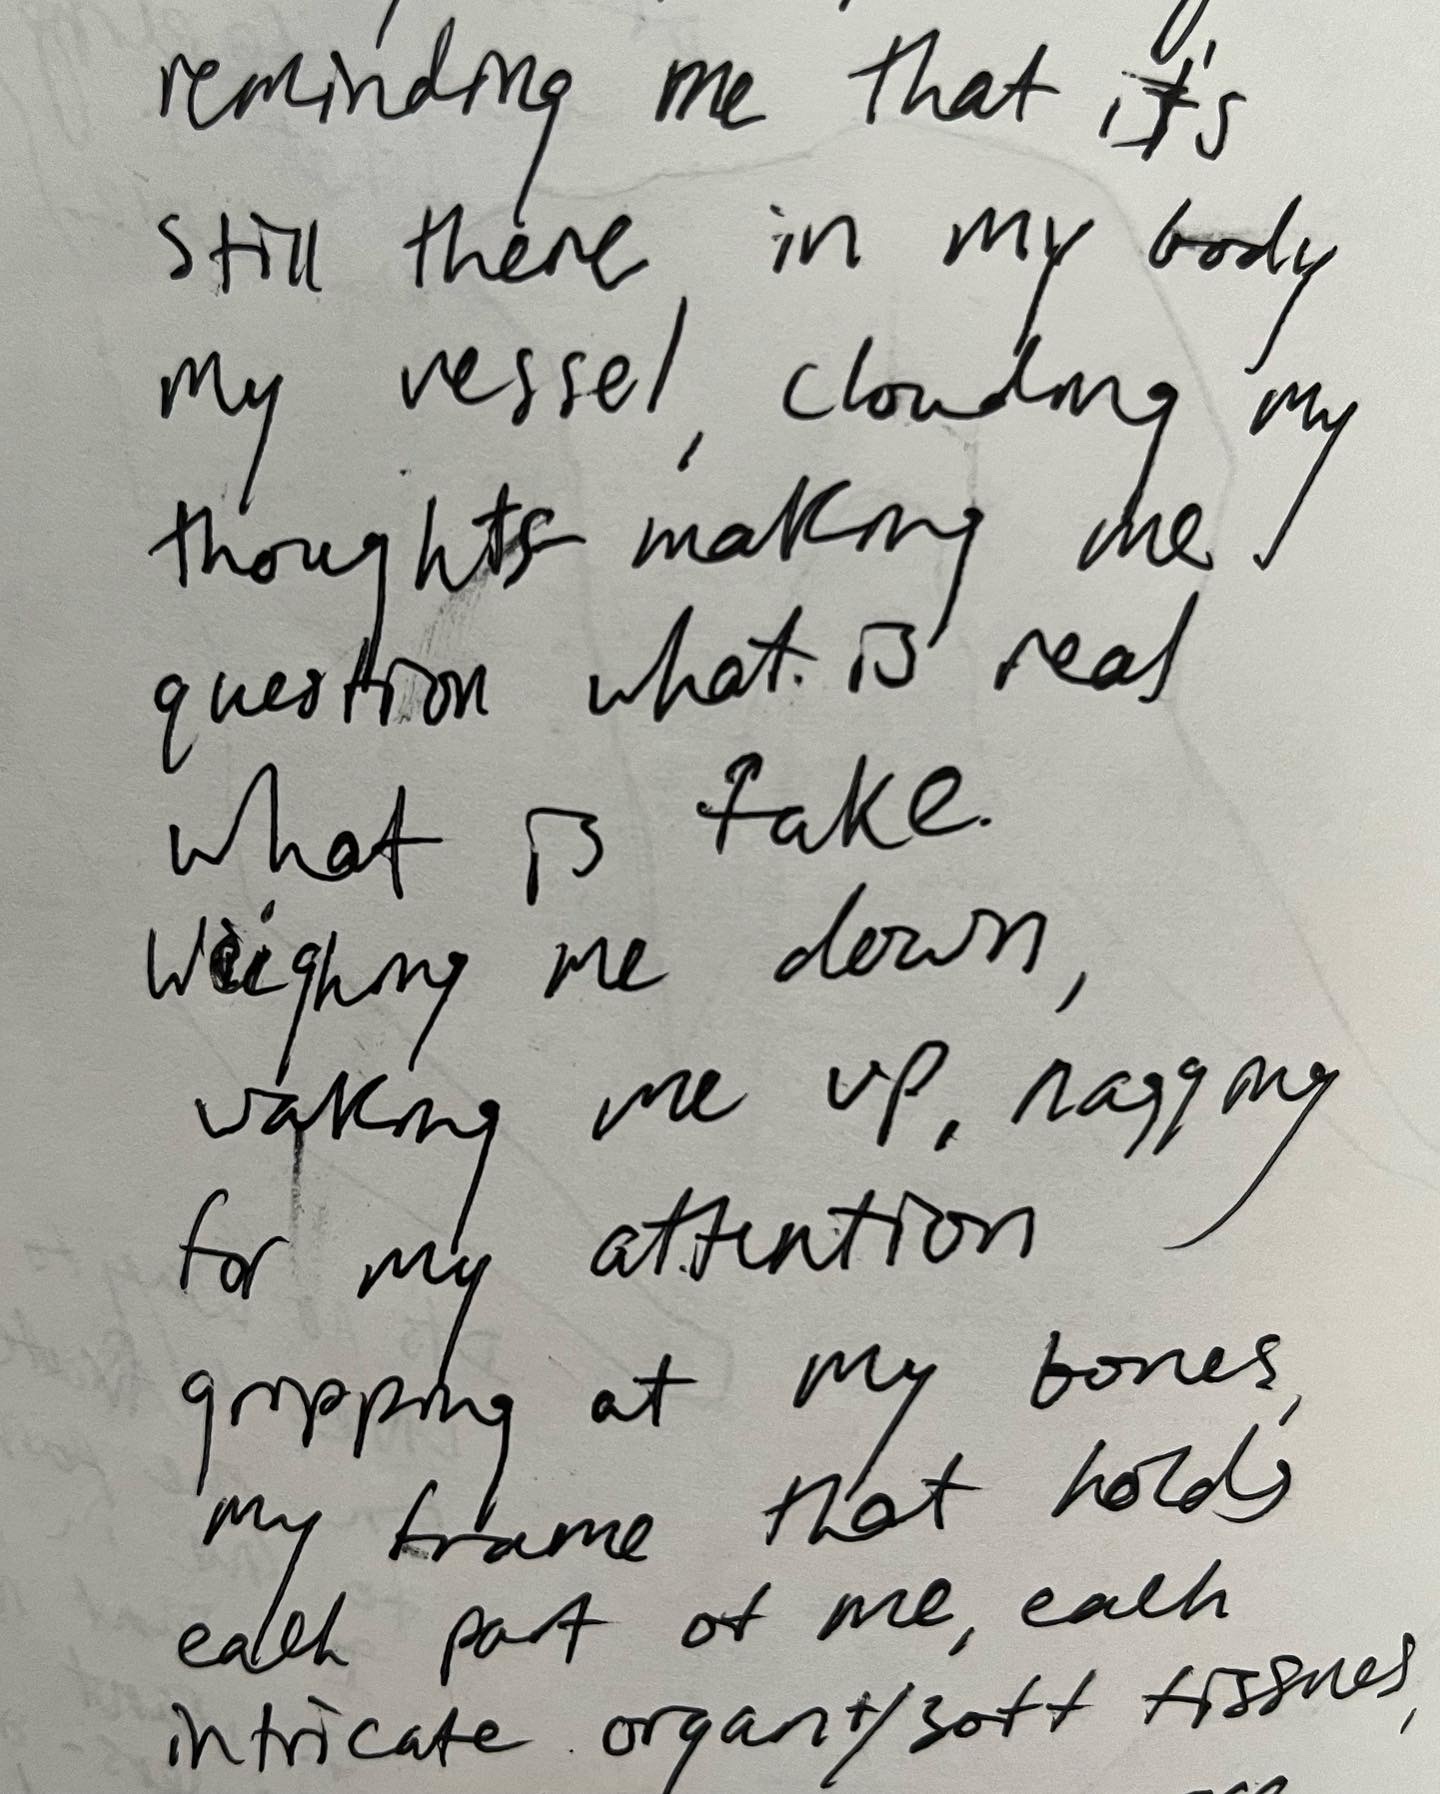 reminding me that it's
still there, in my body
my vessel, clouding my
thoughts making me
question what is real
what is fake.
Weighing me down,
waking me up, nagging
for my attention
gripping at my bones,
my frame that holds
each part of me, each
intricate organ+/soft tissues,